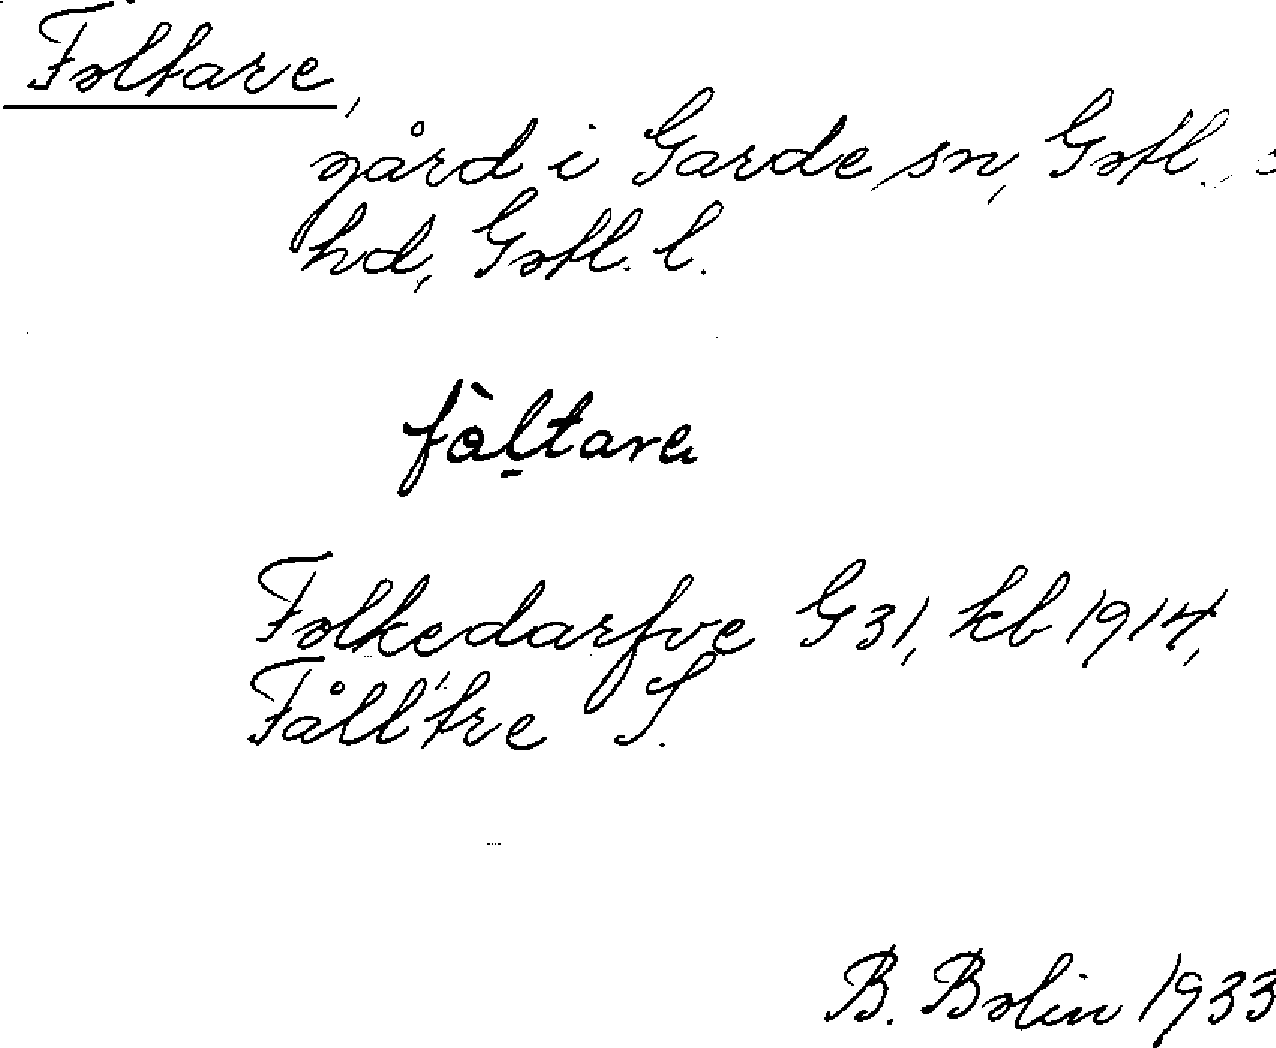 Foltare,
gård i Garde sn, Gotl. s
hd, Gotl. l.
fàl̠tara
Folkedarfve G31, kb 1914,
Fåll'tre S.
B. Bolin 1933